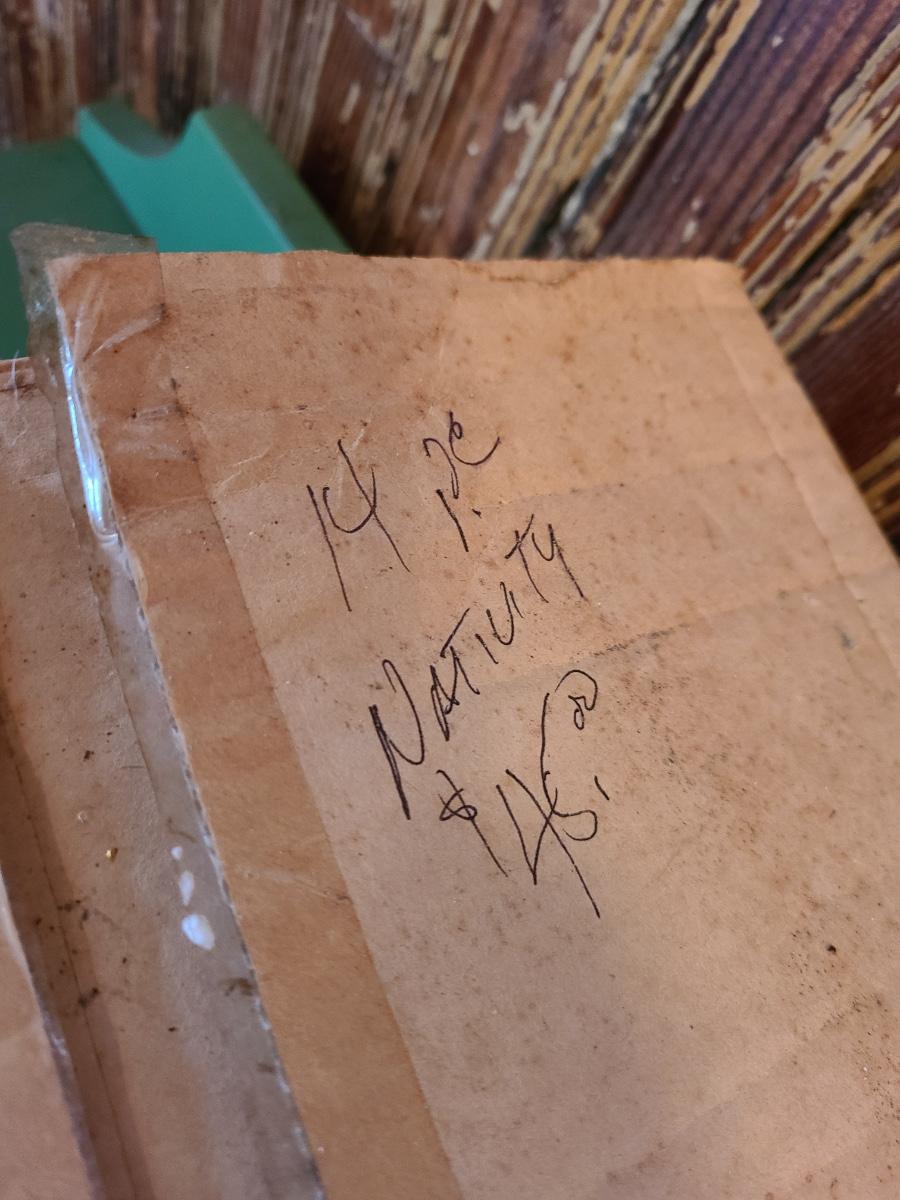 14 pc
NATIVITY
$145.00